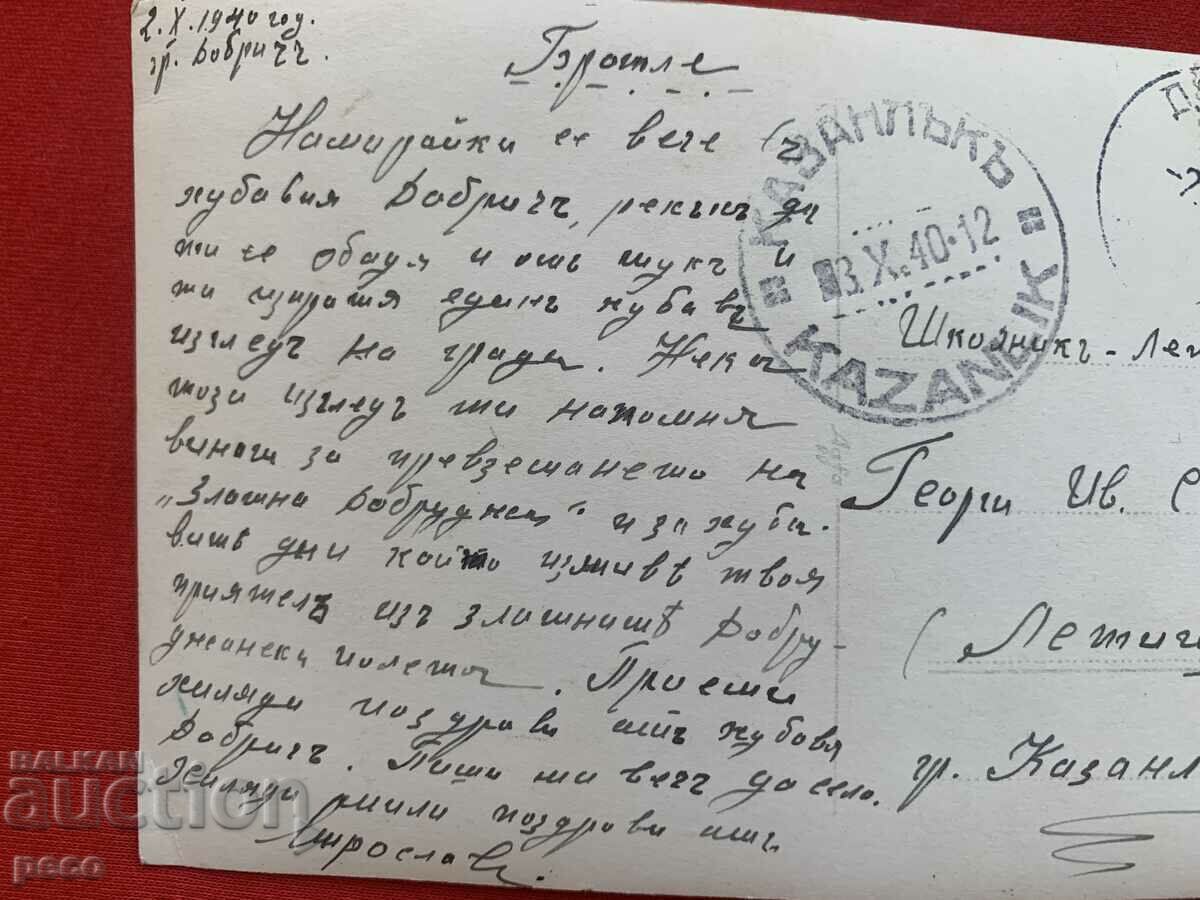 2.X.1940 год.
гр. Добричъ.
Братле
Намирайки се вече въ
хубавия Добричъ, рекъхъ да
ти се обадя и отъ тукъ и
ти изпратя единъ хубавъ
изгледъ на града. Нека
този изгледъ ти напомня
винаги за превземането на
„Златна Добруджа“ и за хуба-
витѣ дни който изживѣ твоя
приятелъ изъ златнитѣ Добру-
джански полета. Приеми
хиляди поздрави отъ хубавя
Добричъ. Пиши ми вечъ до село.
Хиляди мили поздрави отъ
Мирославъ.
КАЗАНЛЪКЪ
3.X.40.12
KAZANLIK
Школникъ-Лет
Георги Ив. С
(Летищ
гр. Казанл
BALKAN
auction
peco